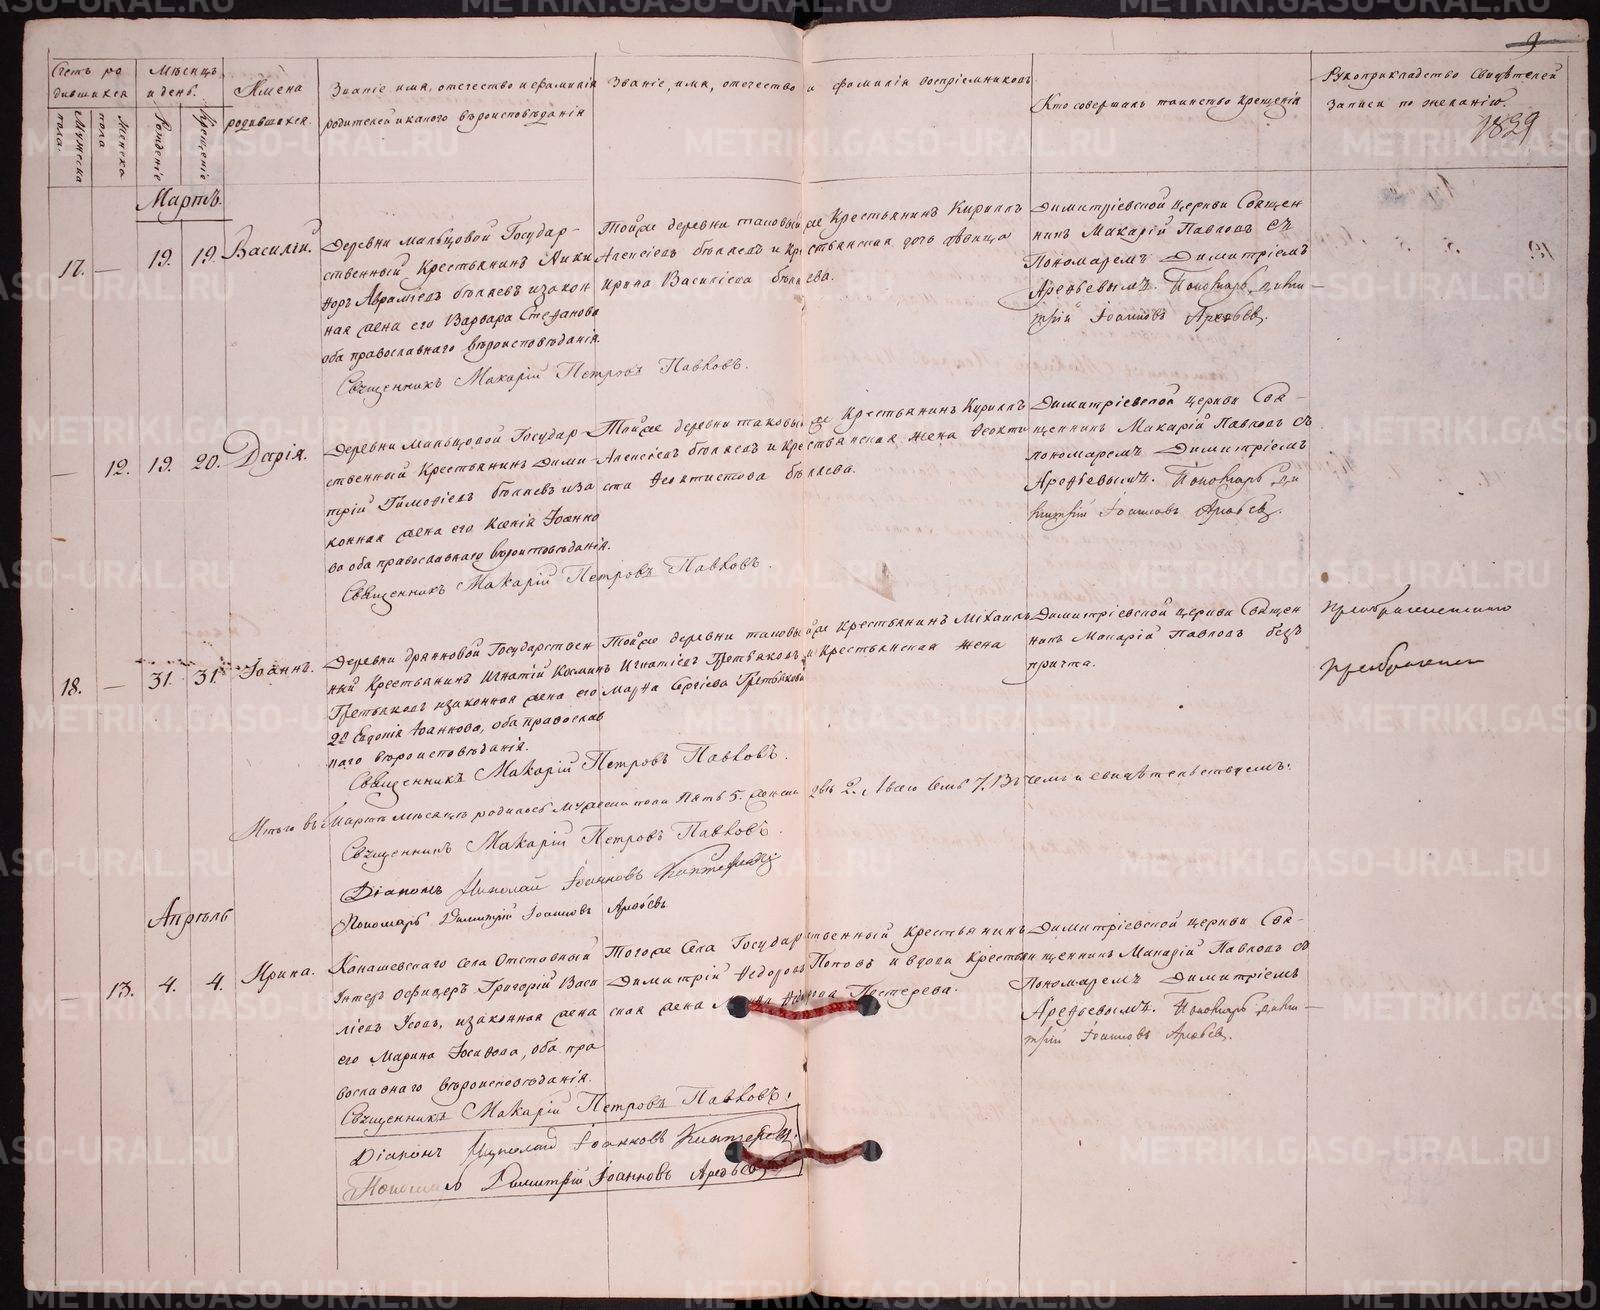 Счетъ ро
дившихся
Мѣсяцъ
и день.
Имена
родившихся.
Званіе имя, отечество и фамилія
родителей и какого вѣроисповѣданія
Званіе, имя, отечество и фамилія воспріемниковъ
Кто совершалъ таинство крещенія
Рукоприкладство свидѣтелей
записи по желанію.
1829
Мужеска
пола.
Женска
пола
Рожденіе
Крещеніе
Мартъ.
17.
—
19.
19.
Василій.
Деревни Мальцовой Государ-
ственный Крестьянинъ Ники
форъ Авраміевъ Бѣляевъ и закон
ная жена его Варвара Стефанова
оба православнаго вѣроисповѣданія.
Священникъ Макарій Петровъ Павловъ.
Тойже деревни таковый же Крестьянинъ Кириллъ
Алексіевъ Бѣляевъ и Крестьянская дочь дѣвица
Ирина Василіева Бѣляева.
Димитріевской церкви Священ
никъ Макарій Павловъ съ
Пономаремъ Димитріемъ
Арефьевымъ. Пономарь Дими-
трій Іоанновъ Арефьевъ.
—
12.
19.
20.
Дарія.
Деревни Мальцовой Государ-
ственный Крестьянинъ Дими-
трій Тимофіевъ Бѣляевъ и за
конная жена его Ксенія Іоанно
ва оба православнаго вѣроисповѣданія.
Священникъ Макарій Петровъ Павловъ.
Тойже деревни таковый же Крестьянинъ Кириллъ
Алексіевъ Бѣляевъ и Крестьянская жена Феокти
ста Феоктистова Бѣляева.
Димитріевской церкви Свя-
щенникъ Макарій Павловъ съ
пономаремъ Димитріемъ
Арефьевымъ. Пономарь Ди
митрій Іоанновъ Арефьевъ.
18.
—
31.
31.
Іоаннъ.
Деревни Дрянновой Государствен
ный Крестьянинъ Игнатій Косминъ
Третьяковъ и законная жена его
2я Евдокія Іоаннова, оба православ
наго вѣроисповѣданія.
Священникъ Макарій Петровъ Павловъ.
Тойже деревни таковый же Крестьянинъ Михаилъ
Игнатіевъ Третьяковъ и Крестьянская жена
Марѳа Сергіева Третьякова
Димитріевской церкви Священ
никъ Макарій Павловъ безъ
причта.
Итого въ Мартѣ мѣсяцѣ родилось мужеска пола пять 5. женска двѣ 2., всего семь 7. Въ чемъ и свидѣтельствуемъ:
Священникъ Макарій Петровъ Павловъ.
Діаконъ Николай Іоанновъ
Пономарь Димитрій Іоанновъ Арефьевъ
Апрѣль
—
13.
4.
4.
Ирина.
Канашевскаго села Отставный
Унтеръ Офицеръ Григорій Васи
ліевъ Усовъ, и законная жена
его Марина Іосифова, оба пра
вославнаго вѣроисповѣданія.
Священникъ Макарій Петровъ Павловъ.
Діаконъ Николай Іоанновъ
Пономарь Димитрій Іоанновъ Арефьевъ
Тогоже Села Государственный Крестьянинъ
Димитрій Федоровъ Поповъ и вдова Крестьян
ская жена Пестерева.
Димитріевской церкви Свя-
щенникъ Макарій Павловъ съ
Пономаремъ Димитріемъ
Арефьевымъ. Пономарь Дими-
трій Іоанновъ Арефьевъ.
METRIKI.GASO-URAL.RU